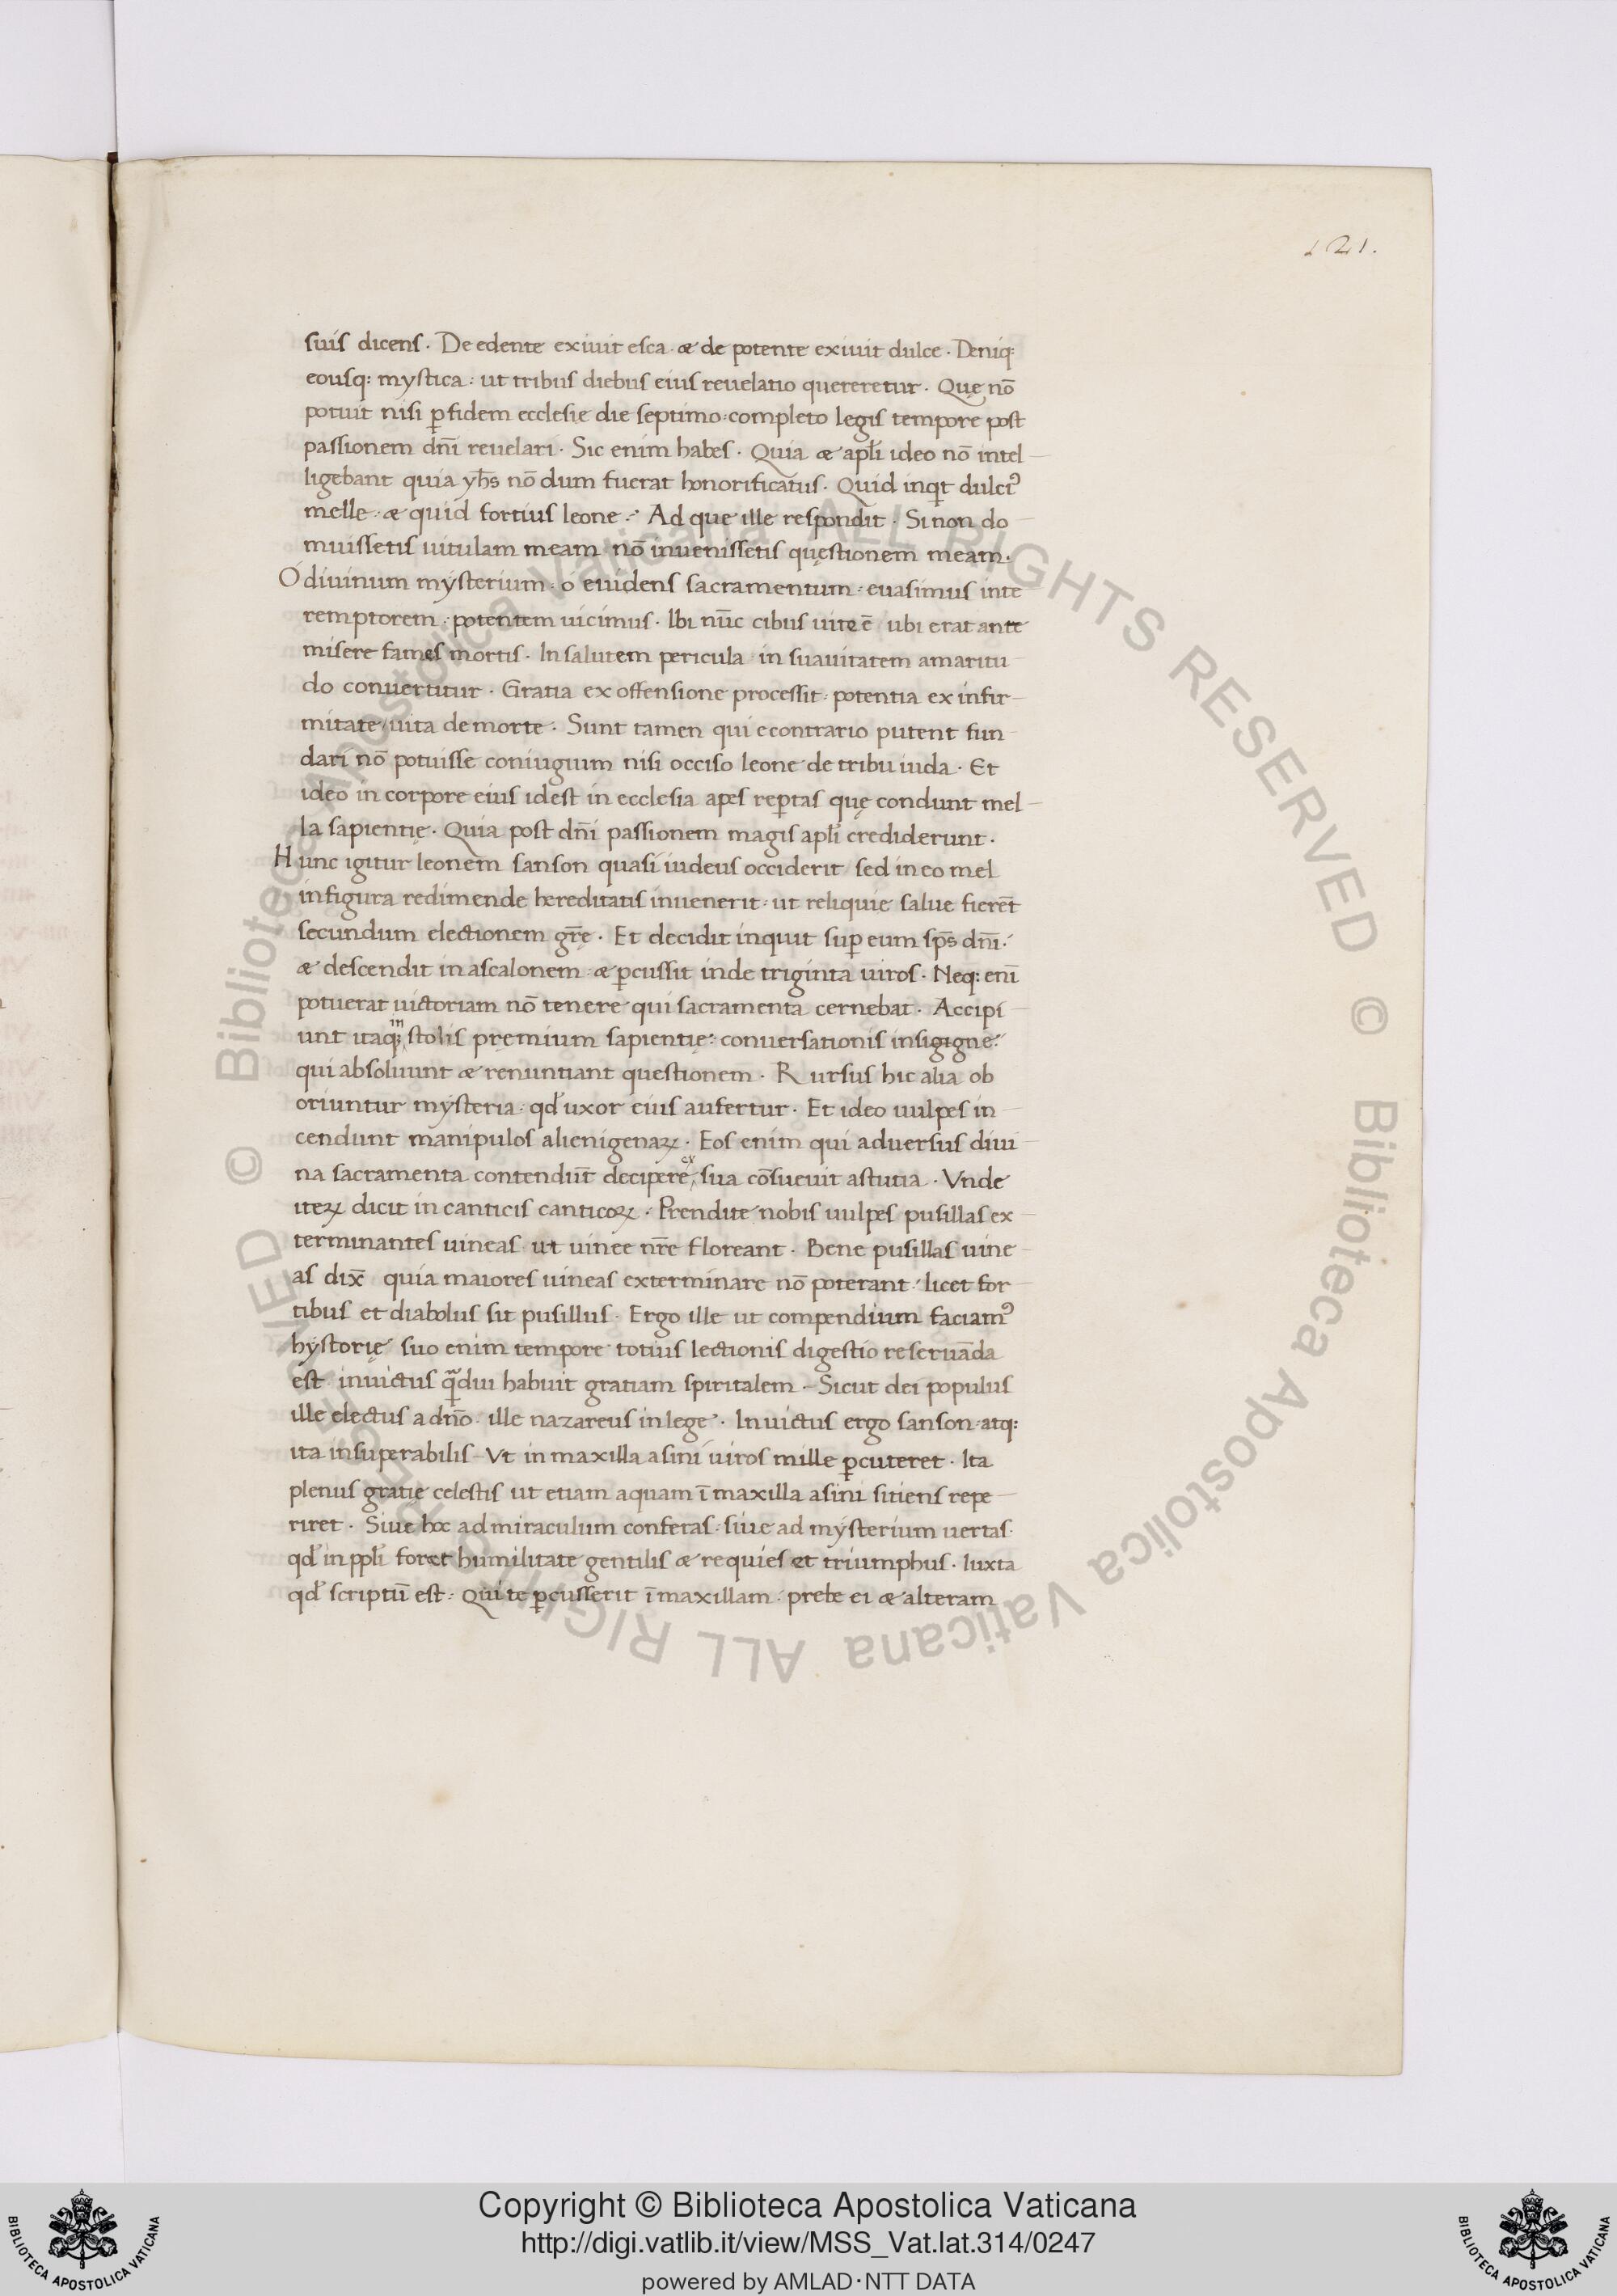 121.
suis dicens. De edente exiuit esca. & de potente exiuit dulce. Deniq:
eousq: mystica: ut tribus diebus eius reuelatio quereretur. Quę nō
potuit nisi ꝑ fidem ecclesię die septimo: completo legis tempore post
passionem dn̄i reuelari. Sic enim habes. Quia & apl̄i ideo nō intel
ligebant quia yh̄s nō dum fuerat honorificatus. Quid inqͥt dulciꝰ
melle. & quid fortius leone. Ad que ille respondit. Si non do
muissetis uitulam meam nō inuenissetis quęstionem meam.
O diuinum mysterium. o euidens sacramentum. euasimus inte
remptorem. potentem uicimus. Ibi nūc cibus uite ē ubi erat ante
misere fames mortis. In salutem pericula in suauitatem amaritu
do conuertitur. Gratia ex offensione processit. potentia ex infir
mitate/uita de morte. Sunt tamen qui e contrario putent fun
dari nō potuisse coniugium nisi occiso leone de tribu iuda. Et
ideo in corpore eius idest in ecclesia apes reꝑtas quę condunt mel
la sapientię. Quia post dn̄i passionem magis apl̄i crediderunt.
Hunc igitur leonem sanson quasi iudeus occiderit/ sed in eo mel
in figura redimende hereditatis inuenerit. ut reliquie salue fierēt
secundum electionem gr̄ę. Et decidit inquit suꝑ eum sp̄s dn̄i.
& descendit in ascalonem. & ꝑcussit inde triginta uiros. Neq: enī
potuerat uictoriam nō tenere qui sacramenta cernebat. Accipi
unt itaq; in stolis pręmium sapientię. conuersationis insigigne.
qui absoluunt & renuntiant questionem. Rursus hic alia ob
oriuntur mysteria. qd̄ uxor eius aufertur. Et ideo uulpes in
cendunt manipulos alienigenaꝝ. Eos enim qui aduersus diui
na sacramenta contendūt decipere ex sua cōsueuit astutia. Vnde
iteꝝ dicit in canticis canticoꝝ. Prendite nobis uulpes pusillas ex
terminantes uineas ut uinee nr̄e floreant. Bene pusillas uine
as dix̄ quia maiores uineas exterminare nō poterant. licet for
tibus et diabolus sit pusillus. Ergo ille ut compendium faciamꝰ
hystorię suo enim tempore totius lectionis digestio reseruāda
est. inuictus qᷓdiu habuit gratiam spiritalem. Sicut dei populus
ille electus a dn̄o. ille nazareus in lege. Inuictus ergo sanson. atq:
ita insuperabilis. Vt in maxilla asini uiros mille ꝑcuteret. Ita
plenus gratię celestis ut etiam aquam ī maxilla asini sitiens repe
riret. Siue hoc ad miraculum conferas. siue ad mysterium uertas.
qd̄ in ppl̄i foret humilitate gentilis & requies et triumphus. Iuxta
qd̄ scriptū est. Qui te ꝑcusserit ī maxillam. prebe ei & alteram
© Biblioteca Apostolica Vaticana ALL RIGHTS RESERVED © Biblioteca Apostolica Vaticana ALL RIGHTS RESERVED
BIBLIOTECA APOSTOLICA VATICANA
Copyright © Biblioteca Apostolica Vaticana
http://digi.vatlib.it/view/MSS_Vat.lat.314/0247
powered by AMLAD·NTT DATA
BIBLIOTECA APOSTOLICA VATICANA